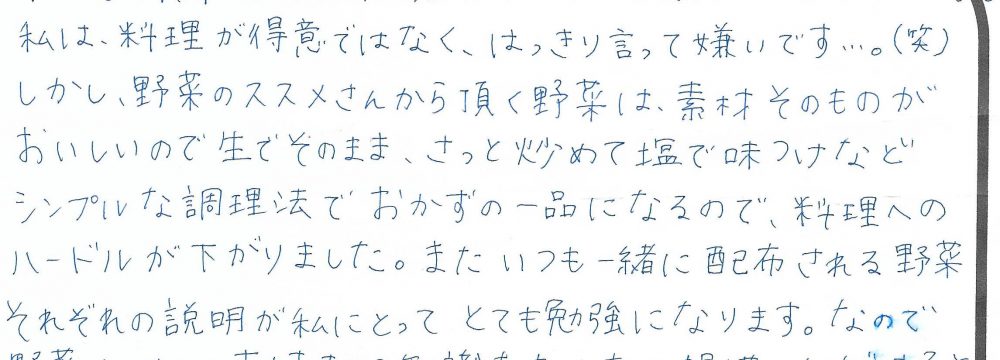 私は、料理が得意ではなく、はっきり言って嫌いです…。(笑)
しかし、野菜のススメさんから頂く野菜は、素材そのものが
おいしいので生でそのまま、さっと炒めて塩で味つけなど
シンプルな調理法でおかずの一品になるので、料理への
ハードルが下がりました。またいつも一緒に配布される野菜
それぞれの説明が私にとってとても勉強になります。なので